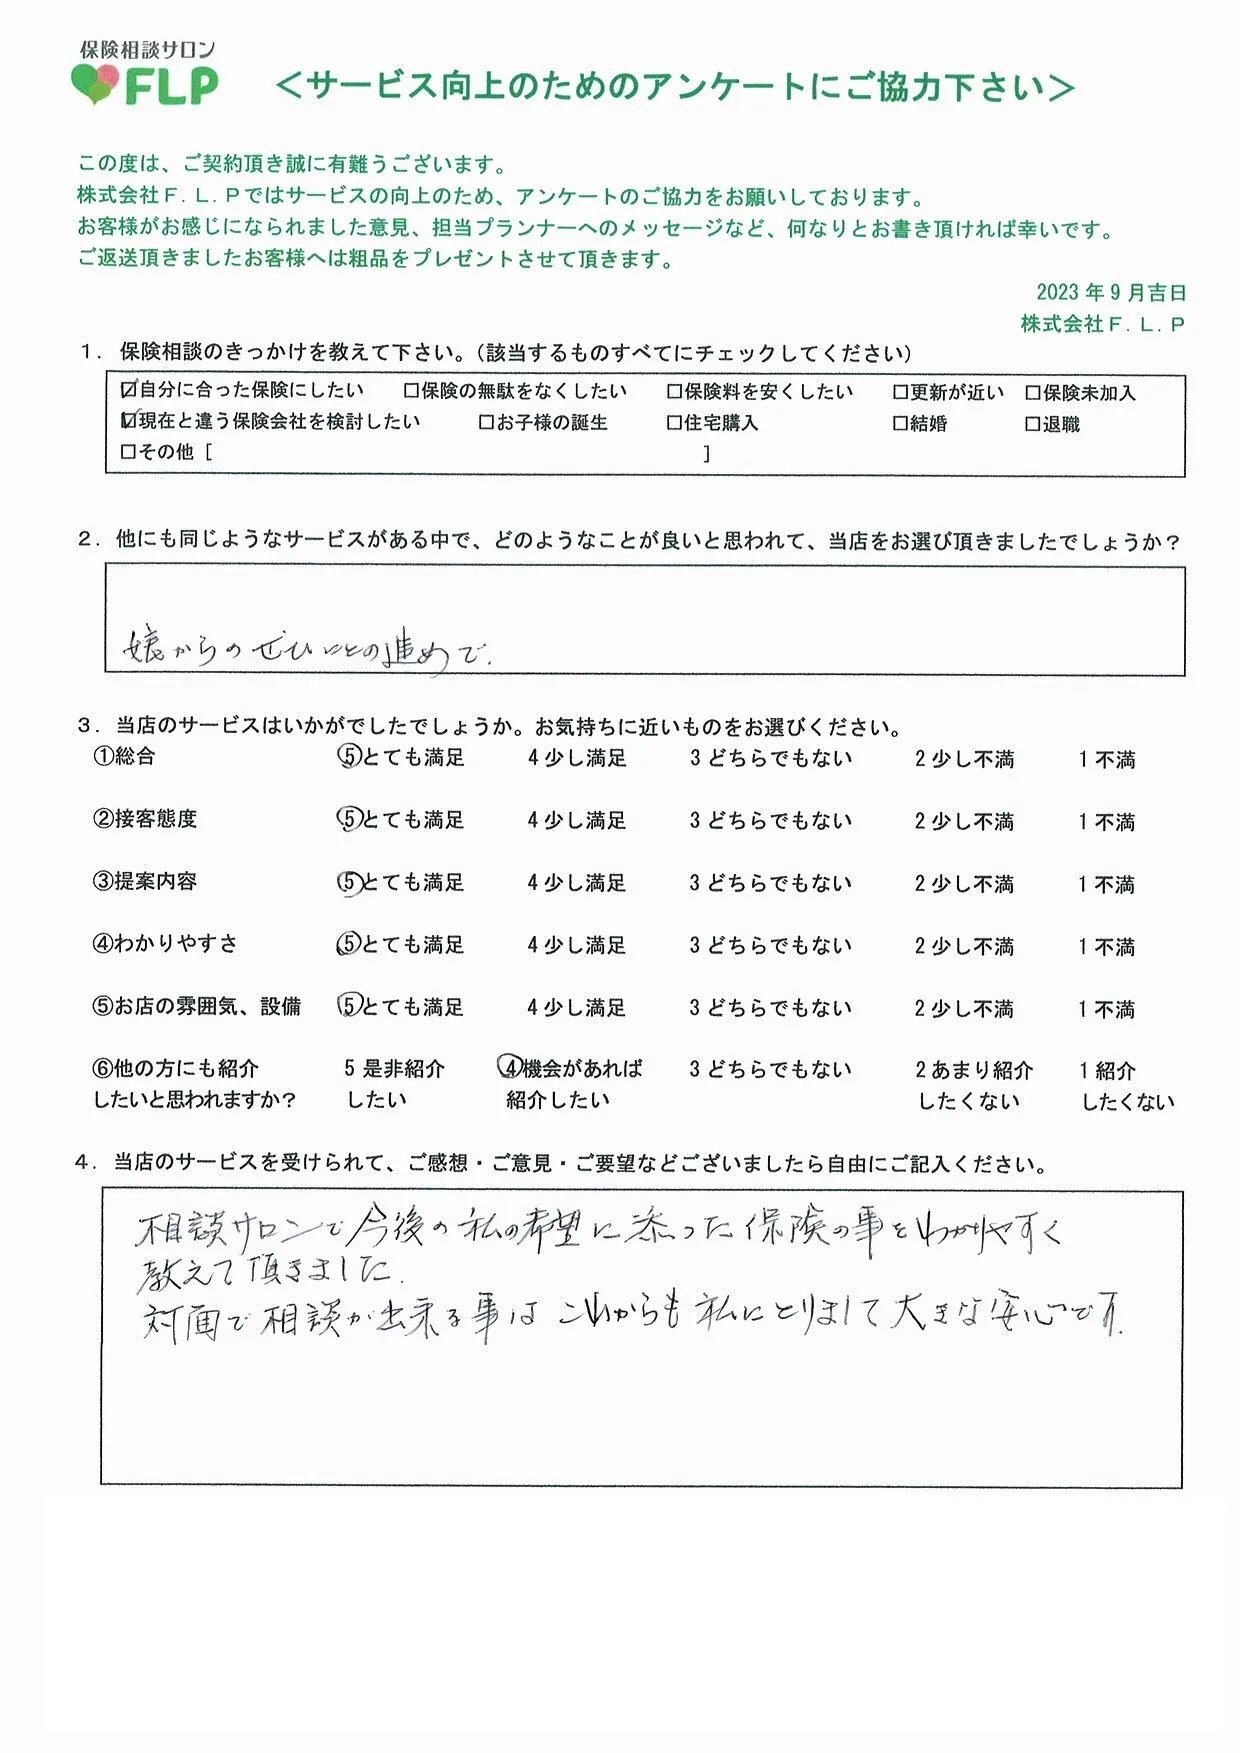 保険相談サロン
FLP
＜サービス向上のためのアンケートにご協力下さい＞
この度は、ご契約頂き誠に有難うございます。
株式会社Ｆ.Ｌ.Ｐではサービスの向上のため、アンケートのご協力をお願いしております。
お客様がお感じになられました意見、担当プランナーへのメッセージなど、何なりとお書き頂ければ幸いです。
ご返送頂きましたお客様へは粗品をプレゼントさせて頂きます。
2023 年 9 月吉日
株式会社Ｆ.Ｌ.Ｐ
１．保険相談のきっかけを教えて下さい。（該当するものすべてにチェックしてください）
☑自分に合った保険にしたい □保険の無駄をなくしたい □保険料を安くしたい □更新が近い □保険未加入
☑現在と違う保険会社を検討したい □お子様の誕生 □住宅購入 □結婚 □退職
□その他［ ］
２．他にも同じようなサービスがある中で、どのようなことが良いと思われて、当店をお選び頂きましたでしょうか？
娘からのぜひにとの進めで.
３．当店のサービスはいかがでしたでしょうか。お気持ちに近いものをお選びください。
①総合 5とても満足 4 少し満足 3 どちらでもない 2 少し不満 1 不満
②接客態度 5とても満足 4 少し満足 3 どちらでもない 2 少し不満 1 不満
③提案内容 5とても満足 4 少し満足 3 どちらでもない 2 少し不満 1 不満
④わかりやすさ 5とても満足 4 少し満足 3 どちらでもない 2 少し不満 1 不満
⑤お店の雰囲気、設備 5とても満足 4 少し満足 3 どちらでもない 2 少し不満 1 不満
⑥他の方にも紹介 5 是非紹介 4機会があれば 3 どちらでもない 2 あまり紹介 1 紹介
したいと思われますか？ したい 紹介したい したくない したくない
４．当店のサービスを受けられて、ご感想・ご意見・ご要望などございましたら自由にご記入ください。
相談サロンで今後の私の希望に添った保険の事をわかりやすく
教えて頂きました.
対面で相談が出来る事はこれからも私にとりまして大きな安心です.